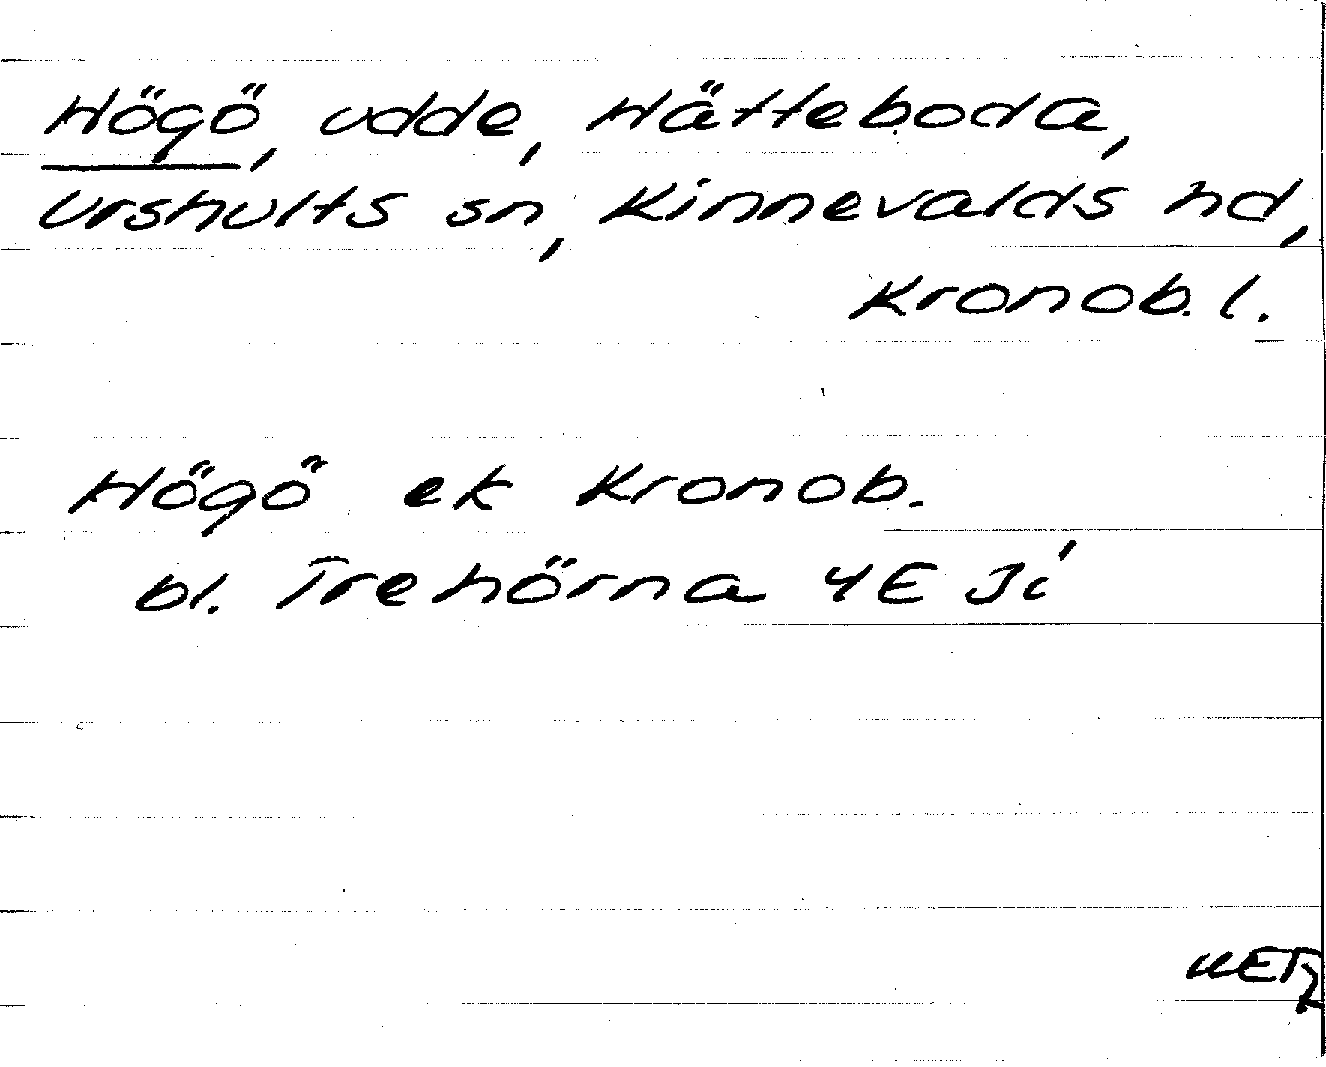 Högö, udde, Hätteboda,
Urshults sn, Kinnevalds hd,
Kronob. l.
Högö ek Kronob.
bl. Trehörna 4E